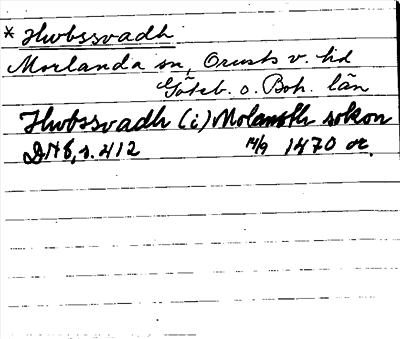 * Hwbssvadh
Morlanda sn, Orusts v. hd
Göteb. o. Boh. län
Hwbssvadh (i) Molansth sokon
DN 8, s. 412 14/9 1470 or.